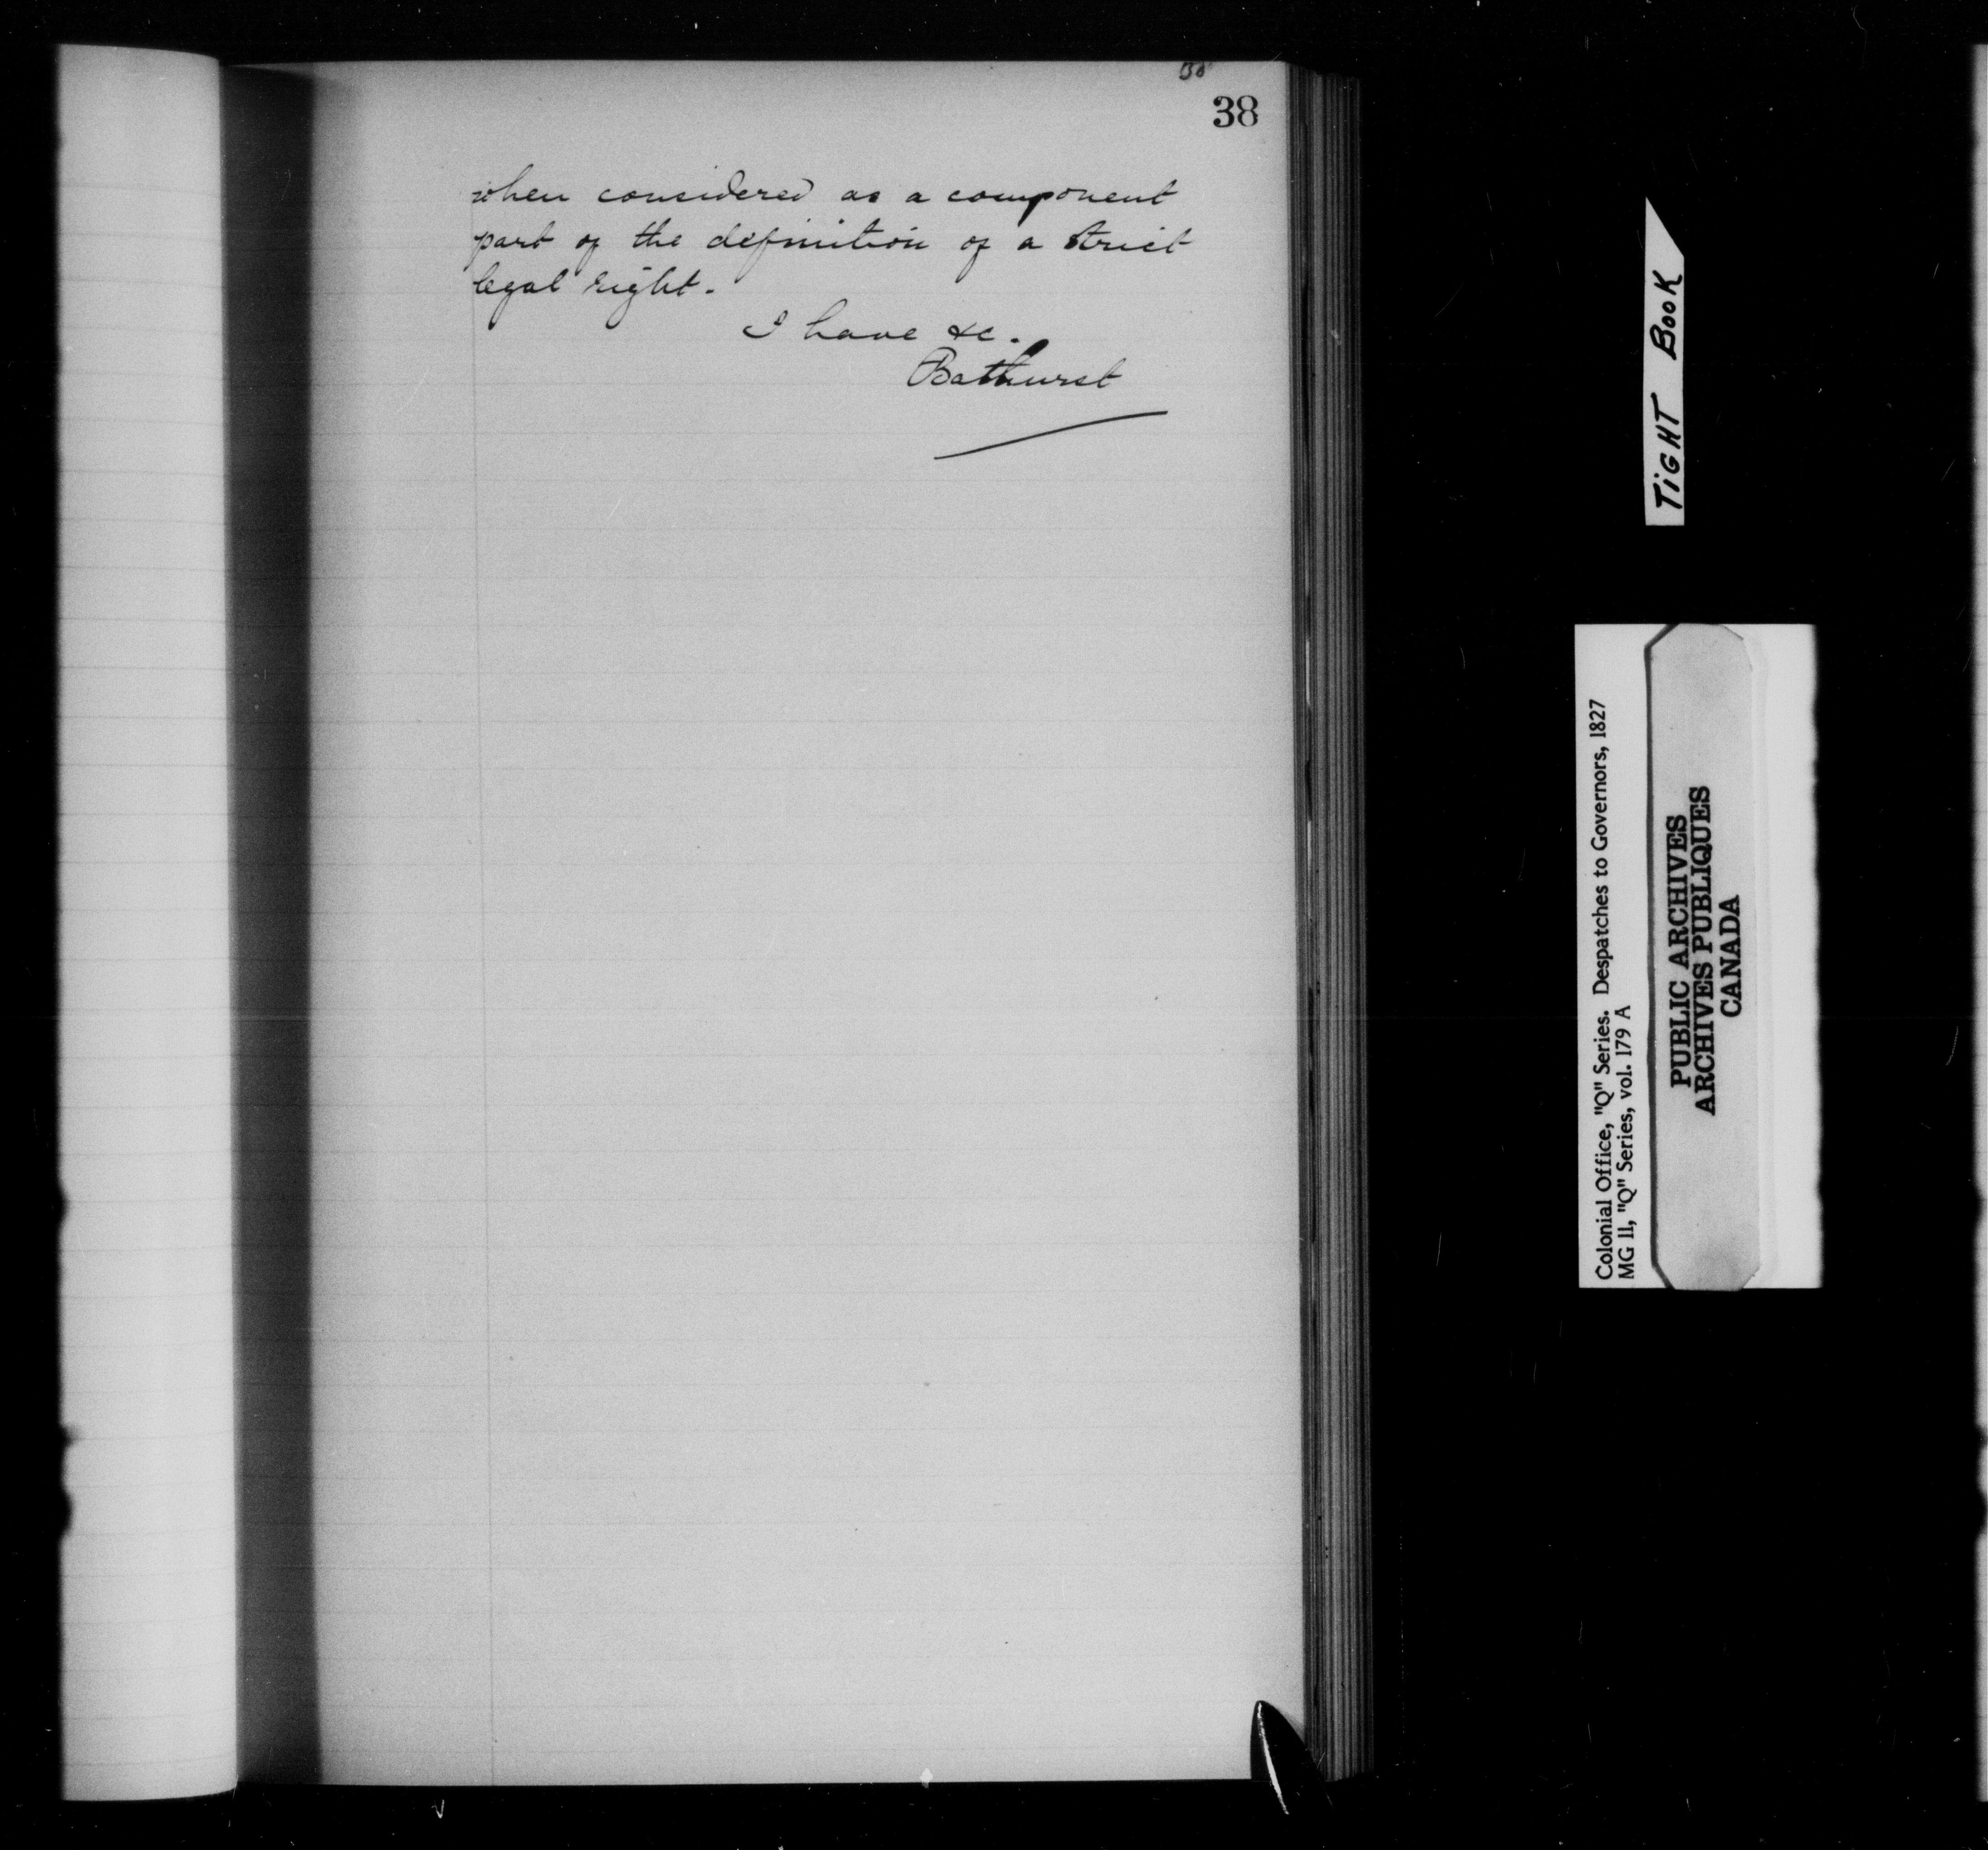 38
when considered as a component
part of the definition of a strict
legal right.
I have &c.
Bathurst
TIGHT BOOK
Colonial Office, "Q" Series. Despatches to Governors, 1827
MG 11, "Q" Series, vol. 179 A
PUBLIC ARCHIVES
ARCHIVES PUBLIQUES
CANADA